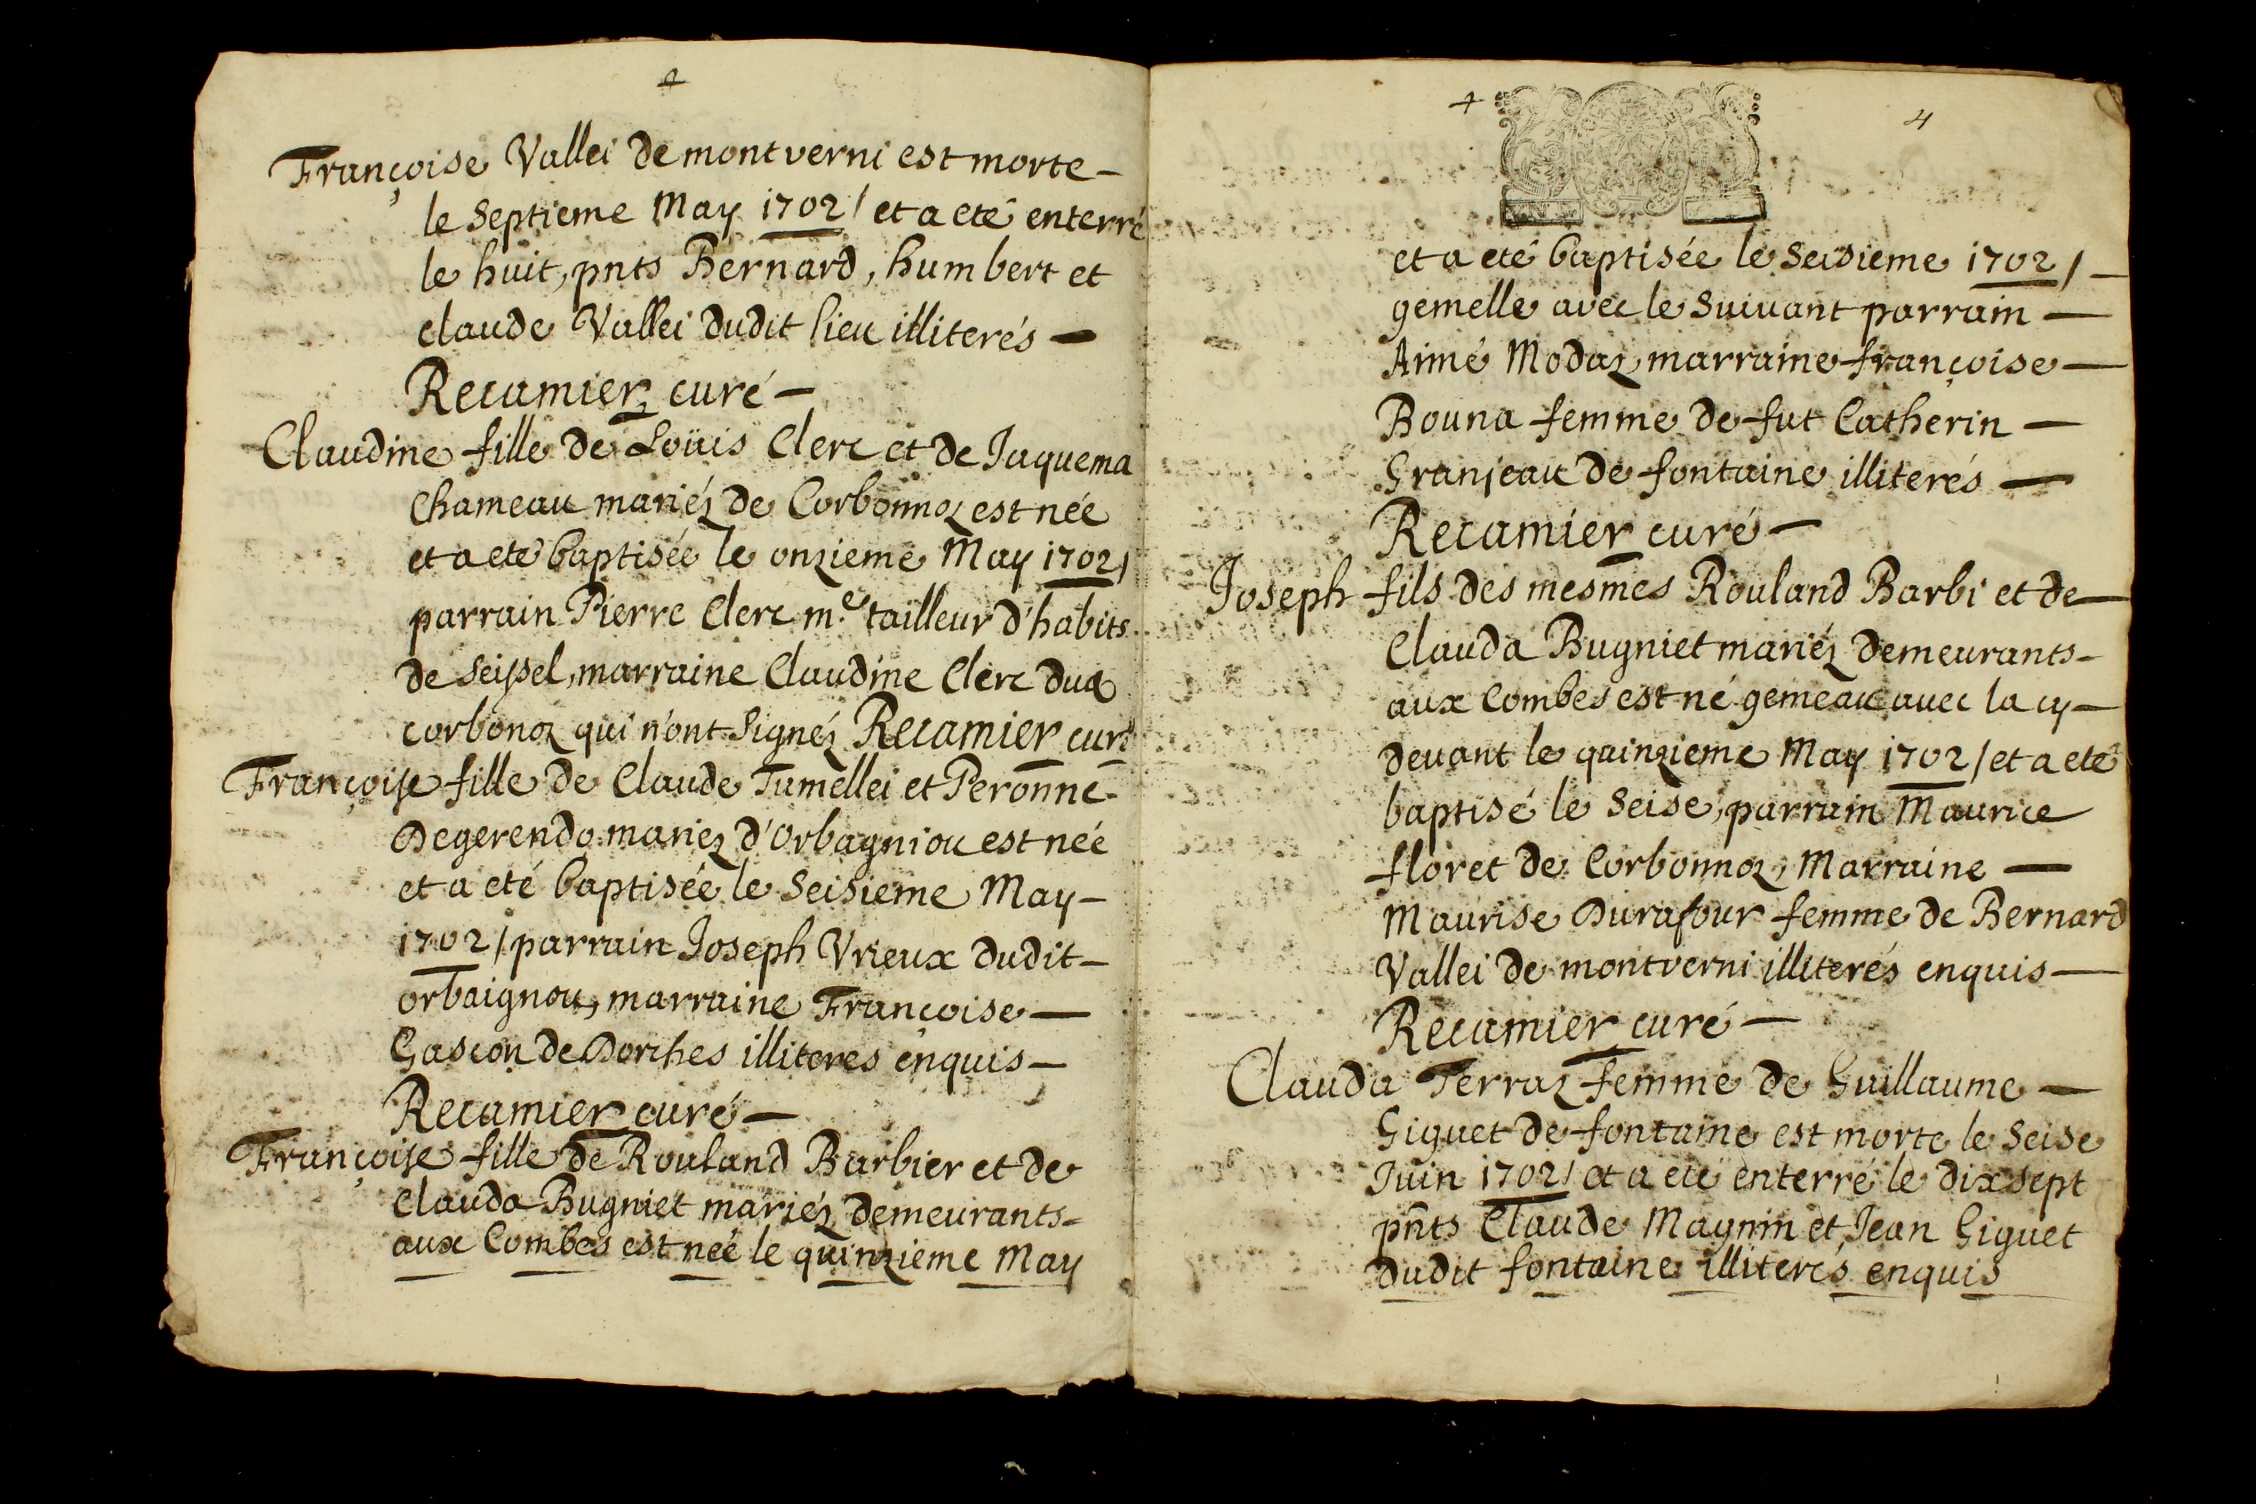 Françoise Vallei de montverni est morte –
le Septieme May 1702 / et a eté enterré
le huit, pnts Bernard, humbert et
claude Vallei dudit lieu illiterés –
Recamier curé –
Claudine fille de Loüis Clerc et de Jaquema
Chameau mariéz de Corbonnoz est née
et a eté baptisée le onzieme May 1702 /
parrain Pierre Clerc m.e tailleur d'habits
de Seissel, marraine Claudine Clerc dud
corbonoz qui n'ont Signéz Recamier curé
Françoise fille de Claude Tumellei et Peronne
Degerendo mariez d'Orbagniou est née
et a eté baptisée le Seisieme May –
1702 / parrain Joseph Vrieux dudit –
orbaignou, marraine Françoise –
Gascon de Dorches illiteres enquis –
Recamier curé –
Françoise fille de Rouland Barbier et de
Clauda Bugniet mariéz demeurants –
aux Combes est née le quinzieme May
4
et a eté baptisée le Seisieme 1702 / –
gemelle avec le Suivant parrain –
Aimé Modaz marraine françoise –
Bouna femme de fut Catherin –
Granjeau de fontaine illiterés –
Recamier curé –
Joseph fils des mesmes Rouland Barbi et de –
Clauda Bugniet mariéz demeurants –
aux Combes est né gemeau avec la cy –
devant le quinzieme May 1702 / et a eté
baptisé le Seise, parrain Maurice
floret de Corbonnoz, Marraine –
Maurise Durafour femme de Bernard
Vallei de montverni illiterés enquis –
Recamier curé –
Clauda Terraz femme de Guillaume –
Giguet de fontaine est morte le Seise
Juin 1702 / et a eté enterré le dix sept
pñts Claude Magnin et Jean Giguet
dudit fontaine illiterés enquis